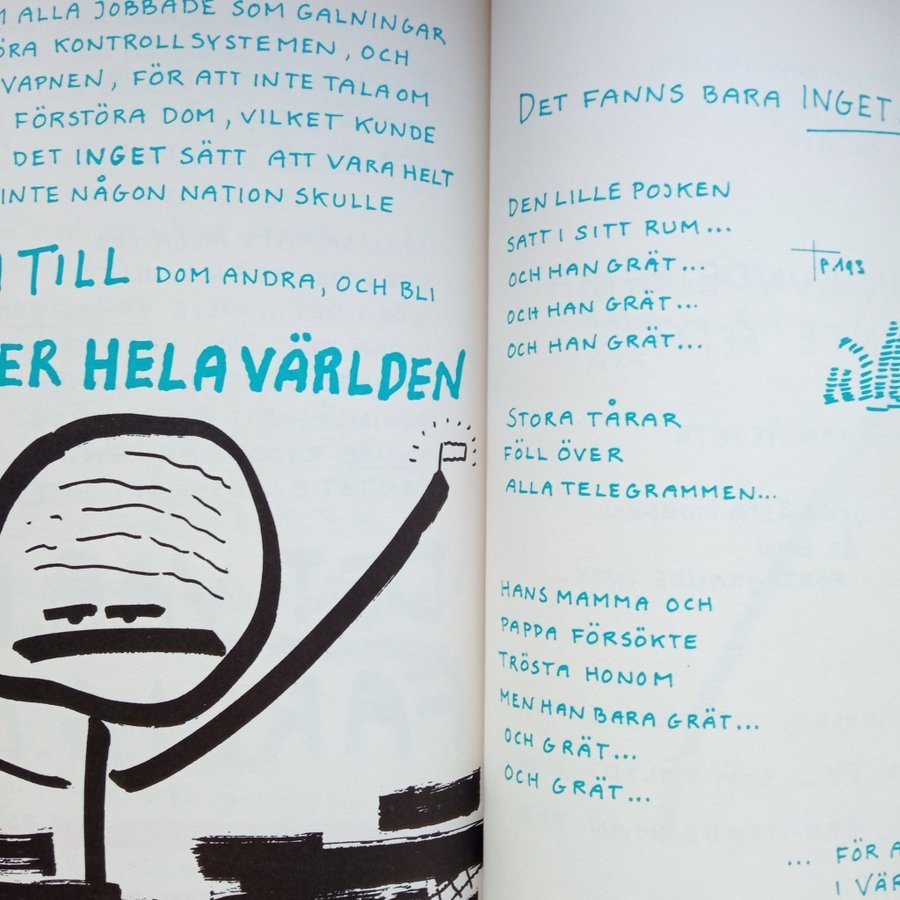 ALLA JOBBADE SOM GALNINGAR
KONTROLLSYSTEMEN, OCH
VAPNEN, FÖR ATT INTE TALA OM
FÖRSTÖRA DOM, VILKET KUNDE
DET INGET SÄTT ATT VARA HELT
INTE NÅGON NATION SKULLE
TILL DOM ANDRA, OCH BLI
HELA VÄRLDEN
DET FANNS BARA INGET
DEN LILLE POJKEN
SATT I SITT RUM...
OCH HAN GRÄT...
OCH HAN GRÄT...
OCH HAN GRÄT...
P.193
STORA TÅRAR
FÖLL ÖVER
ALLA TELEGRAMMEN...
HANS MAMMA OCH
PAPPA FÖRSÖKTE
TRÖSTA HONOM
MEN HAN BARA GRÄT...
OCH GRÄT...
OCH GRÄT...
... FÖR
I